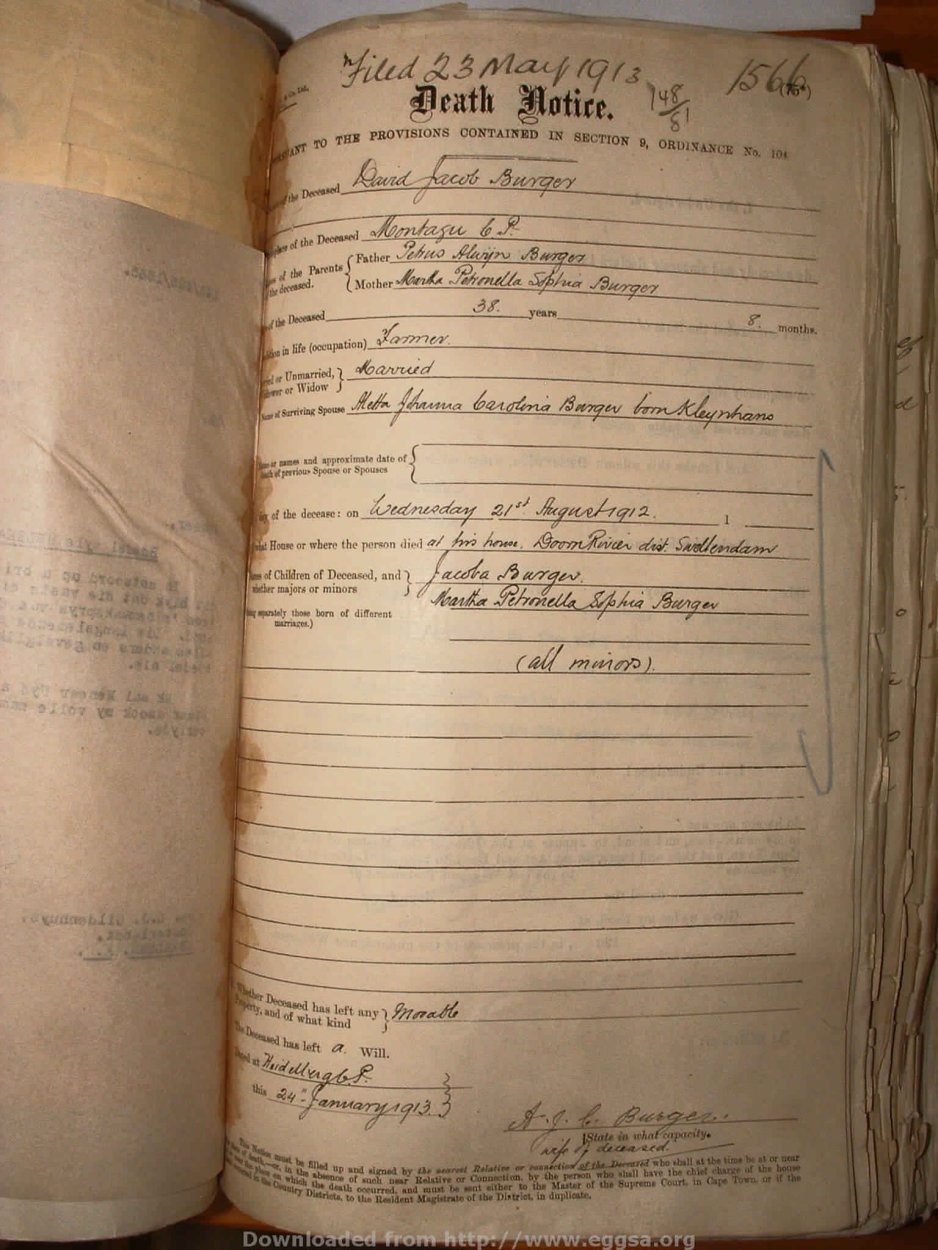 Filed 23 May 1913
1566
148/8
Death Notice.
TO THE PROVISIONS CONTAINED IN SECTION 9, ORDINANCE No. 104
of the Deceased David Jacob Burger
of the Deceased Montagu C.P.
of the Parents { Father Petrus Alwijn Burger
the deceased. { Mother Martha Petronella Sophia Burger
of the Deceased 38. years 8. months.
in life (occupation) Farmer.
or Unmarried, } Married
or Widow
of Surviving Spouse Aletta Johanna Carolina Burger born Kleynhans
or names and approximate date of {
of previous Spouse or Spouses
of the decease: on Wednesday 21st August 1912. 1
House or where the person died at his house, Doorn Rivier dist. Swellendam
of Children of Deceased, and } Jacoba Burger.
whether majors or minors
Martha Petronella Sophia Burger
separately those born of different
marriages.)
(all minors).
Whether Deceased has left any } Movable
Property, and of what kind
The Deceased has left a Will.
Dated at Heidelberg C.P.
this 24th January 1913.
A. J. C. Burger.
State in what capacity.
wife of deceased.
This Notice must be filled up and signed by the nearest Relative or connection of the Deceased who shall at the time be at or near
of death,—or, in the absence of such near Relative or Connection, by the person who shall have the chief charge of the house
the place on which the death occurred, and must be sent either to the Master of the Supreme Court, in Cape Town, or if the
in the Country Districts, to the Resident Magistrate of the District, in duplicate.
Downloaded from http://www.eggsa.org